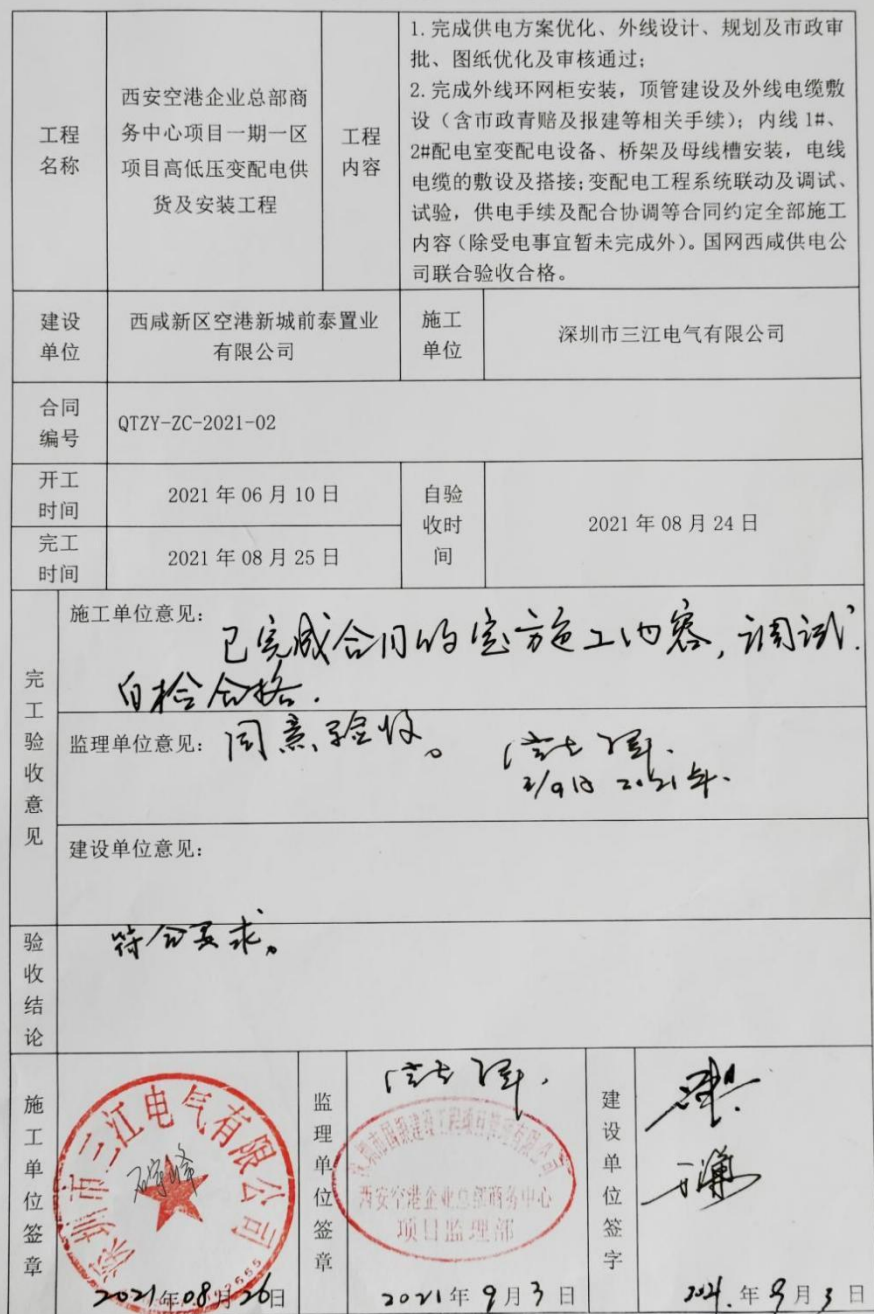 工程
名称
西安空港企业总部商
务中心项目一期一区
项目高低压变配电供
货及安装工程
工程
内容
1.完成供电方案优化、外线设计、规划及市政审
批、图纸优化及审核通过；
2.完成外线环网柜安装，顶管建设及外线电缆敷
设（含市政青赔及报建等相关手续）；内线 1#、
2#配电室变配电设备、桥架及母线槽安装，电线
电缆的敷设及搭接；变配电工程系统联动及调试、
试验，供电手续及配合协调等合同约定全部施工
内容（除受电事宜暂未完成外）。国网西咸供电公
司联合验收合格。
建设
单位
西咸新区空港新城前泰置业
有限公司
施工
单位
深圳市三江电气有限公司
合同
编号
QTZY-ZC-2021-02
开工
时间
2021 年 06 月 10 日
自验
收时
间
2021 年 08 月 24 日
完工
时间
2021 年 08 月 25 日
完工验收意见
施工单位意见：
已完成合同约定施工内容，调试.
自检合格.
监理单位意见：同意验收。
2021年.
建设单位意见：
验收结论
符合要求。
施工单位签章
深圳市三江电气有限公司
2021年08月26日
监理单位签章
西安空港企业总部商务中心
项目监理部
2021年9月3日
建设单位签字
2021.年9月3日